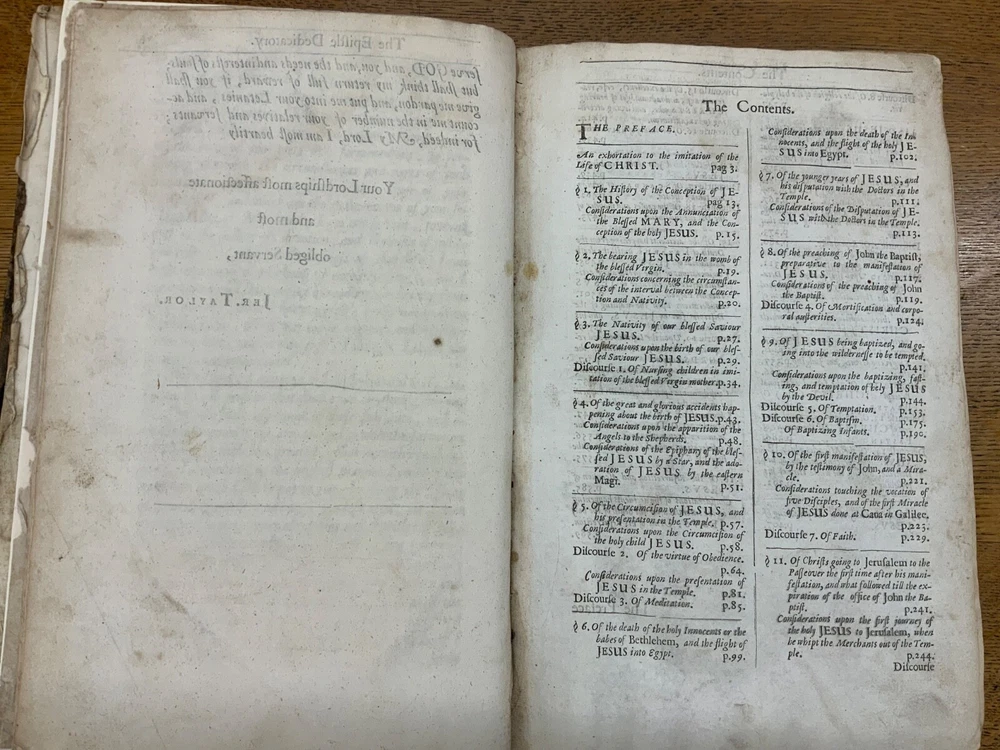 The Epiſtle Dedicatory.
ſerve GOD, and you, and the needs and intereſts of ſouls;
but ſhall think my return full of reward, if you ſhall
give me pardon, and put me into your Letanies, and ac-
count me in the number of your relatives and ſervants;
for indeed, My Lord, I am moſt heartily
Your Lordſhips moſt affectionate
and moſt
obliged Servant,
JER. TAYLOR.
The Contents.
THE PREFACE.
An exhortation to the imitation of the
Life of CHRIST. pag 3.
§ 1. The Hiſtory of the Conception of JE-
SUS. pag 13.
Conſiderations upon the Annunciation of
the Bleſſed MARY, and the Con-
ception of the holy JESUS. p.15.
§ 2. The bearing JESUS in the womb of
the bleſſed Virgin. p.19.
Conſiderations concerning the circumſtan-
ces of the interval between the Concep-
tion and Nativity. p.20.
§ 3. The Nativity of our bleſſed Saviour
JESUS. p.27.
Conſiderations upon the birth of our bleſ-
ſed Saviour JESUS. p.29.
Diſcourſe 1. Of Nurſing children in imi-
tation of the bleſſed Virgin mother. p.34.
§ 4. Of the great and glorious accidents hap-
pening about the birth of JESUS. p.43.
Conſiderations upon the apparition of the
Angels to the Shepherds. p.48.
Conſiderations of the Epiphany of the bleſ-
ſed JESUS by a Star, and the ado-
ration of JESUS by the eaſtern
Magi. p.51.
§ 5. Of the Circumciſion of JESUS, and
his preſentation in the Temple. p.57.
Conſiderations upon the Circumciſion of
the holy child JESUS. p.58.
Diſcourſe 2. Of the virtue of Obedience.
p.64.
Conſiderations upon the preſentation of
JESUS in the Temple. p.81.
Diſcourſe 3. Of Meditation. p.85.
§ 6. Of the death of the holy Innocents or the
babes of Bethlehem, and the flight of
JESUS into Egypt. p.99.
Conſiderations upon the death of the Inn
nocents, and the flight of the holy JE-
SUS into Egypt. p.102.
§ 7. Of the younger years of JESUS, and
his diſputation with the Doctors in the
Temple. p.111.
Conſiderations of the Diſputation of JE-
SUS with the Doctors in the Temple.
p.113.
§ 8. Of the preaching of John the Baptiſt,
preparative to the manifeſtation of
JESUS. p.117.
Conſiderations of the preaching of John
the Baptiſt. p.119.
Diſcourſe 4. Of Mortification and corpo-
ral auſterities. p.124.
§ 9. Of JESUS being baptized, and go-
ing into the wilderneſſe to be tempted.
p.141.
Conſiderations upon the baptizing, faſt-
ing, and temptation of holy JESUS
by the Devil. p.144.
Diſcourſe 5. Of Temptation. p.153.
Diſcourſe 6. Of Baptiſm. p.175.
Of Baptizing Infants. p.190.
§ 10. Of the firſt manifeſtation of JESUS,
by the teſtimony of John, and a Mira-
cle. p.221.
Conſiderations touching the vocation of
five Diſciples, and of the firſt Miracle
of JESUS done at Cana in Galilee.
p.223.
Diſcourſe 7. Of Faith. p.229.
§ 11. Of Chriſts going to Jeruſalem to the
Paſſeover the firſt time after his mani-
feſtation, and what followed till the ex-
piration of the office of John the Ba-
ptiſt. p.241.
Conſiderations upon the firſt journey of
the holy JESUS to Jeruſalem, when
he whipt the Merchants out of the Tem-
ple. p.244.
Diſcourſe